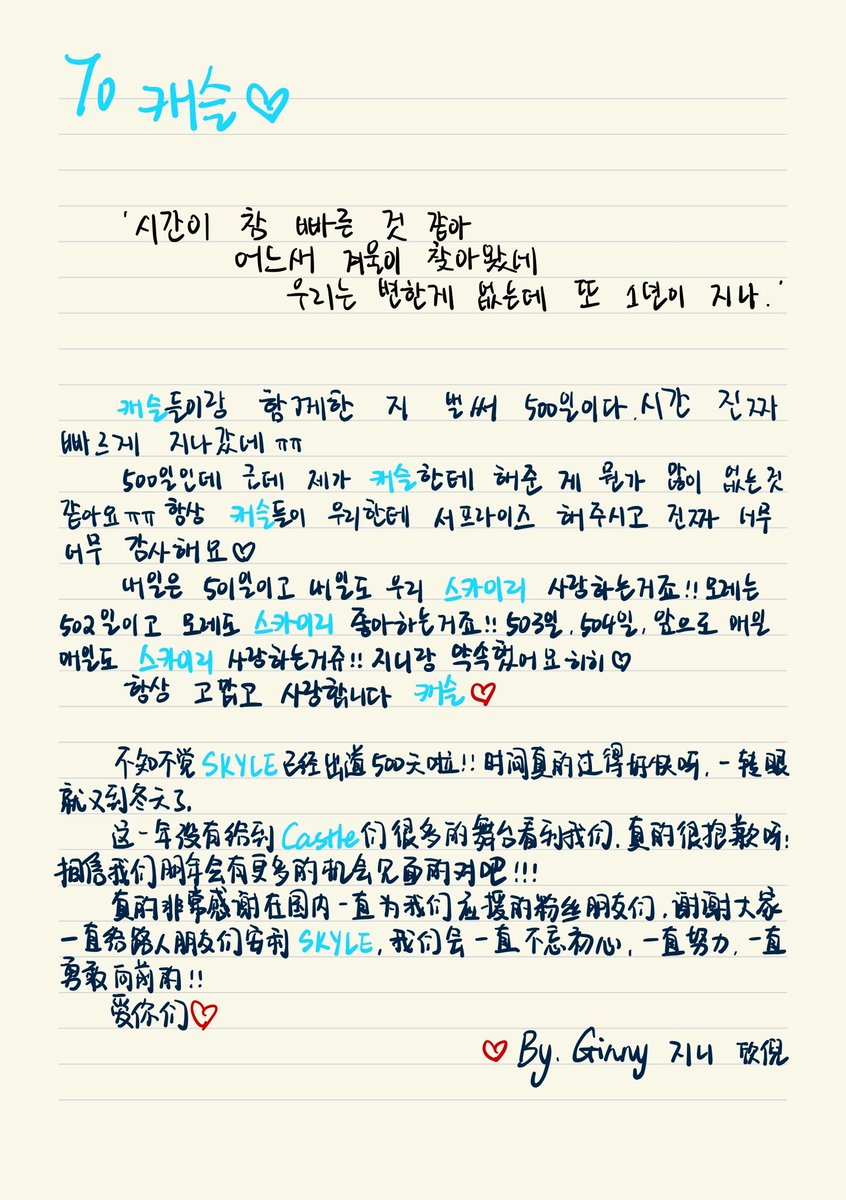 To 캐슬♡
'시간이 참 빠른 것 같아
어느새 겨울이 찾아왔네
우리는 변한게 없는데 또 1년이 지나.'
캐슬들이랑 함께한 지 벌써 500일이다. 시간 진짜
빠르게 지나갔네ㅠㅠ
500일인데 근데 제가 캐슬한테 해준 게 뭔가 많이 없는것
같아요ㅠㅠ 항상 캐슬들이 우리한테 서프라이즈 해주시고 진짜 너무
너무 감사해요♡
내일은 501일이고 내일도 우리 스카이리 사랑하는거죠!! 모레는
502일이고 모레도 스카이리 좋아하는거죠!! 503일, 504일, 앞으로 매일
매일도 스카이리 사랑하는거쥬!! 지니랑 약속했어요 히히♡
항상 고맙고 사랑합니다 캐슬♡
不知不觉SKYLE已经出道500天啦!! 时间真的过得好快呀, 一转眼
就又到冬天了.
这一年没有给到Castle们很多的舞台看到我们, 真的很抱歉呀!
相信我们明年会有更多的机会见面的对吧!!!
真的非常感谢在国内一直为我们应援的粉丝朋友们, 谢谢大家
一直给路人朋友们安利SKYLE, 我们会一直不忘初心, 一直努力, 一直
勇敢向前的!!
爱你们♡
♡ By. Ginny 지니 欣倪